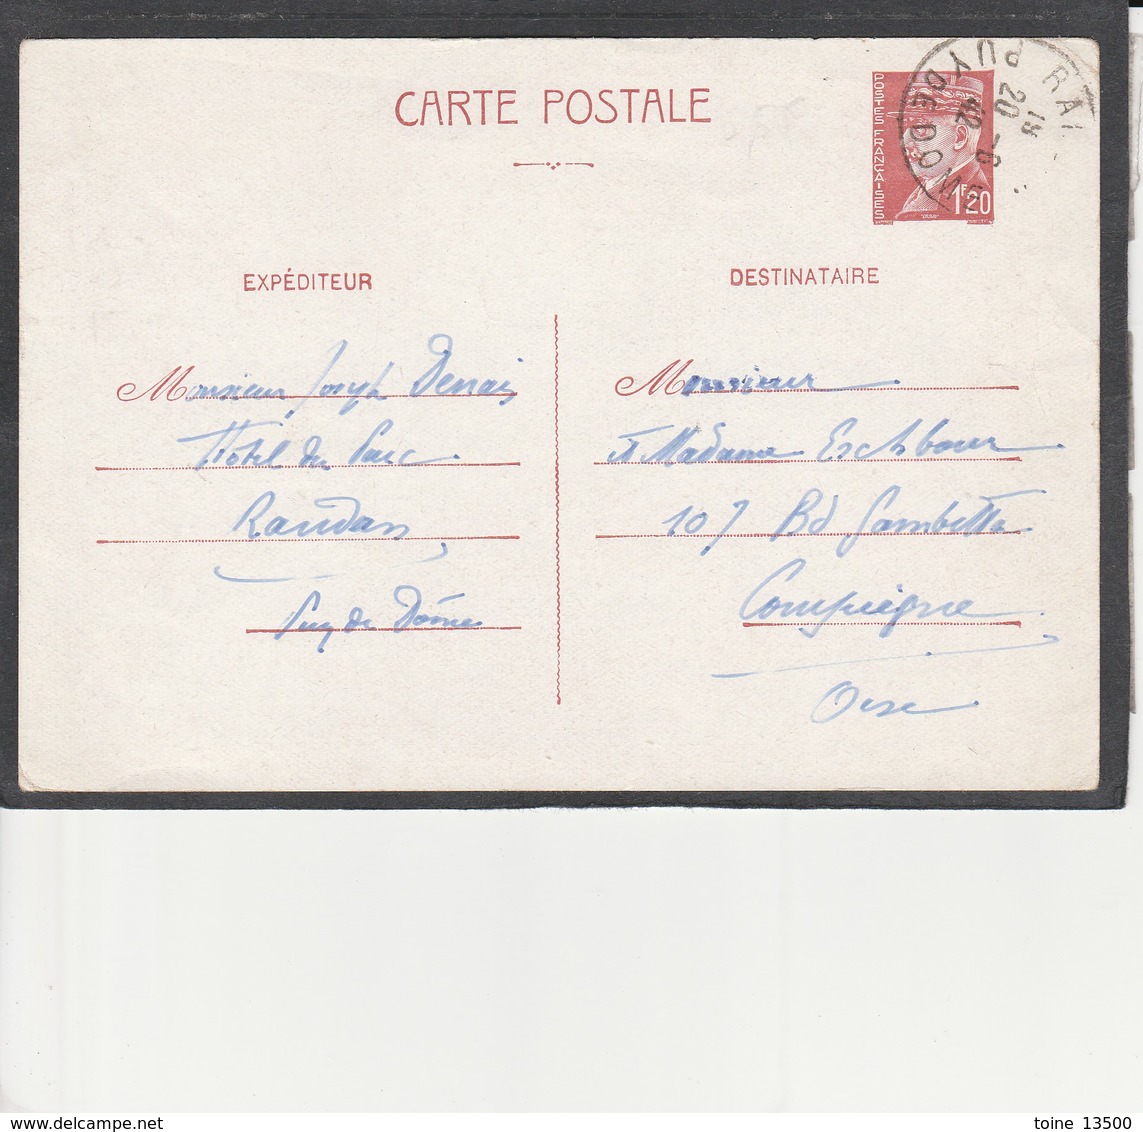 CARTE POSTALE
POSTES FRANÇAISES
1F20
RA
PUY DE DOME
19
20 -6
42
EXPÉDITEUR
Monsieur Joseph Denais
Hôtel du Parc
Randan
Puy de Dôme
DESTINATAIRE
Monsieur
et Madame Eschbour
107 Bd Gambetta
Compiègne
Oise
toine 13500